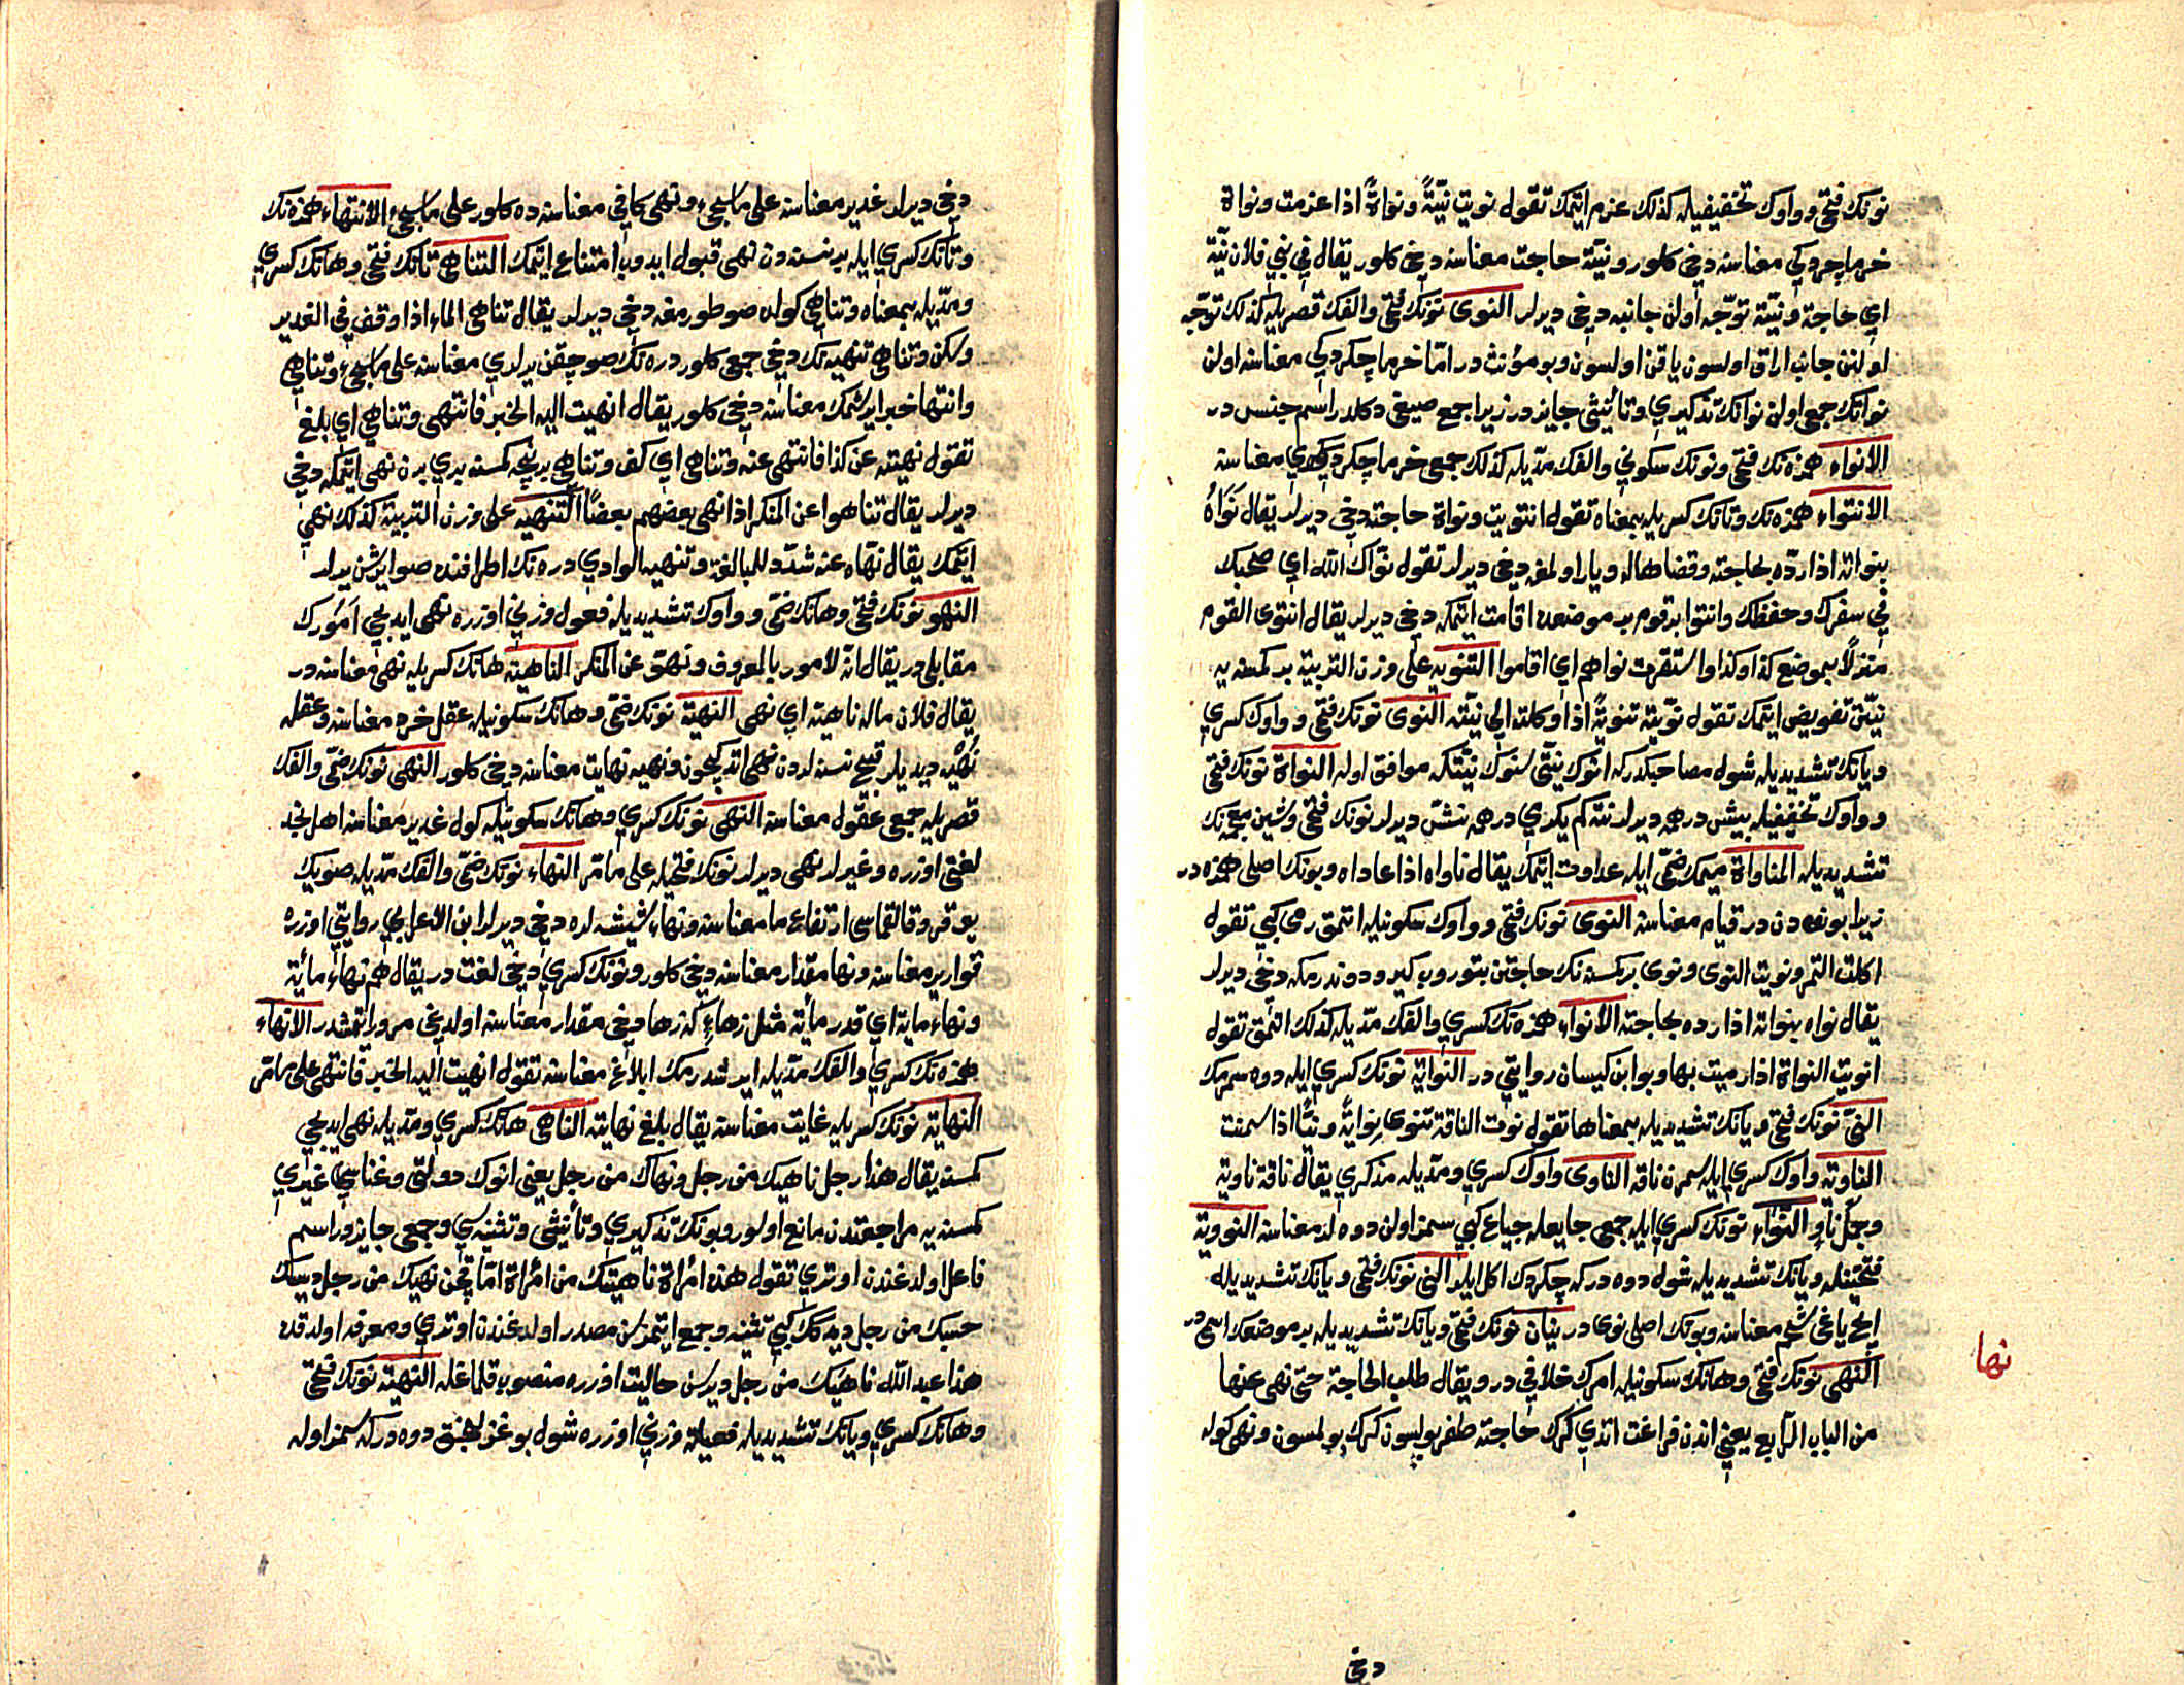 نونك فتحى وواوك تخفيفيله كذلك عزم ايتمك تقول نويت نيّةً ونواةً اذا عزمت ونواة
خرما چردكى معناسنه دخى كلور ونيّة حاجت معناسنه دخى كلور يقال فى بنى فلان نيّة
اى حاجة ونيّة توجّه اولن جانبه دخى ديرلر النوى نونك فتحى والفك قصريله كذلك توجّه
اولنن جانب اراق اولسون ياقن اولسون وبو مؤنث در امّا خرما چكردكى معناسنه اولن
نوانك جمع اولن نوانك تذكيرى وتأنيثى جايز در زيرا جمع صيغى دكلدر اسم جنس در
الانواء همزه نك فتحى ونونك سكونى والفك مدّيله كذلك جمع خرما چكردكلرى معناسنه
الانتواء همزه نك وتانك كسريله بمعناه تقول انتويت ونواة حاجته دخى ديرلر يقال نَوَاهُ
بنواته اذا ردّه بحاجته وقضاها له ويار اولمغه دخى ديرلر تقول نوّاك الله اى صحبك
فى سفرك وحفظك وانتوا بر قوم بر موضعده اقامت ايتمكه دخى ديرلر يقال انتوى القوم
منزلاً بموضع كذا وكذا واستقرت نواهم اى اقاموا التنويه على وزن التربية بر كمسنه يه
نيّتن تفويض ايتمك تقول نوّيته تنويةً اذا وكلته الى نيّته النوى نونك فتحى وواوك كسرى
ويانك تشديديله شول مصاحبكدر كه انوك نيّتى سنوك نيّتكه موافق اوله النواة نونك فتحى
وواوك تخفيفيله بيش درهمه ديرلر نته كم يكرمى درهمه نشّ ديرلر نونك فتحى وشين معجمه نك
تشديديله المناواة ميمك ضمّى ايله عداوت ايتمك يقال ناواه اذا عاداه وبونك اصلى همزه در
زيرا بونوء دن در قيام معناسنه النوى نونك فتحى وواوك سكونيله اتمق رمى كبى تقول
اكلت التمر ونويت النوى ونوى بر كمسنه نك حاجتن بتوروب كيرو دوندرمكه دخى ديرلر
يقال نواه بنواته اذا رده بحاجته الانواء همزه نك كسرى والفك مدّيله كذلك اتمق تقول
انويت النواة اذا رميت بها وبو ابن كيسان روايتى در النواية نونك كسرى ايله دوه سمرمك
النىّ نونك فتحى ويانك تشديديله بمعناها تقول نوت الناقة تنوى نوايةً ونيّاً اذا سمنت
الناوية واوك كسرى ايله سمرن ناقه الناوى واوك كسرى ومدّيله مذكرى يقال ناقة ناوية
وجمل ناوٍ النوّاء نونك كسرى ايله جمعى جايعله جياع كبى سمز اولن دوه لر معناسنه النووية
فتحتيله ويانك تشديديله شول دوه در كه چكردك اكل ايلر النى نونك فتحى ويانك تشديديله
ايج ياغى شحم معناسنه وبونك اصلى نوى در نيان نونك فتحى ويانك تشديديله بر موضعك اسمى در
النهى نونك فتحى وهانك سكونيله امرك خلافى در ويقال طلب الحاجة حتى نهى عنها
من الباب الرابع يعنى اندن فراغت اتدى كرك حاجته ظفر بولسون كرك بولمسون ونهى كوله
نها
دخى
دخى ديرلر غدير معناسنه على ما سيجىء ونهى كافى معناسنه ده كلور على ما سيجىء الانتهاء همزه نك
وتانك كسرى ايله بر نسنه دن نهى قبول ايدوب امتناع ايتمك التناهى تانك فتحى وهانك كسرى
ومدّيله بمعناه وتناهى كولده صو طورمغه دخى ديرلر يقال تناهى الماء اذا وقف فى الغدير
وسكن وتناهى تنهيه نك دخى جمعى كلور دره نك صو چقن يرلرى معناسنه على ما سيجىء وتناهى
وانتها خبر ايرشمك معناسنه دخى كلور يقال انهيت اليه الخبر فانتهى وتناهى اى بلغ
تقول نهيته عن كذا فانتهى عنه وتناهى اى كف وتناهى بر نيچه كمسنه برى برن نهى ايتمكه دخى
ديرلر يقال تناهوا عن المنكر اذا نهى بعضهم بعضاً التنهيه على وزن التربية كذلك نهى
ايتمك يقال نهّاه عنه شدّد للمبالغة وتنهية الوادى دره نك اطرافنده صو ايرشن يرلر
النهو نونك فتحى وهانك ضمّى وواوك تشديديله فعول وزنى اوزره نهى ايديجى اَمُورك
مقابلى در يقال انّه لامور بالمعروف ونهوّ عن المنكر الناهية هانك كسريله نهى معناسنه در
يقال فلان ماله ناهية اى نهى النهية نونك ضمّى وهانك سكونيله عقل خرد معناسنه وعقله
نُهْيَه ديديلر قبيح نسنه لردن نهى اتدكيچون ونهيه نهايت معناسنه دخى كلور النهى نونك ضمّى والفك
قصريله جمعى عقول معناسنه النهى نونك كسرى وهانك سكونيله كول غدير معناسنه اهل نجد
لغتى اوزره وغيرلر نهى ديرلر نونك فتحيله على ما مّر النهاء نونك ضمّى والفك مدّيله صنويك
يوقرو قالقماسى ارتفاع ما معناسنه ونهاء شيشه لره دخى ديرلر ابن الاعرابى روايتى اوزره
قوارير معناسنه ونها مقدار معناسنه دخى كلور ونونك كسرى دخى لغت در يقال هم نهاء مأية
ونهاء ماية اى قدر مأية مثل زهاء كه زها دخى مقدار معناسنه اولديغى مرور ايتمشدر الانهاء
همزه نك كسرى والفك مدّيله ايرشدرمك ابلاغ معناسنه تقول انهيت اليه الخبر فانتهى على ما مّر
النهاية نونك كسريله غايت معناسنه يقال بلغ نهايته الناهى هانك كسرى ومدّيله نهى ايديجى
كمسنه يقال هذا رجل ناهيك من رجل ونهاك من رجل يعنى انوك دولتى وغناسى غيرى
كمسنه يه مراجعتدن مانع اولور وبونك تذكيرى وتأنيثى وتثنيه سى وجمعى جايزدر اسم
فاعل اولدغندن اوترى تقول هذه امرأة ناهيتك من امرأة امّا قچن نهيك من رجل ديسك
حسبك من رجل ديدكك كبى تثنيه وجمع ايتمزسن مصدر اولدغندن اوترى ومعرفه اولدقده
هذا عبد الله ناهيك من رجل ديرسن حاليت اوزره منصوب قلماغله النهية نونك فتحى
وهانك كسرى ويانك تشديديله فعيلة وزنى اوزره شول بوغزلنجق دوه در كه سمز اوله